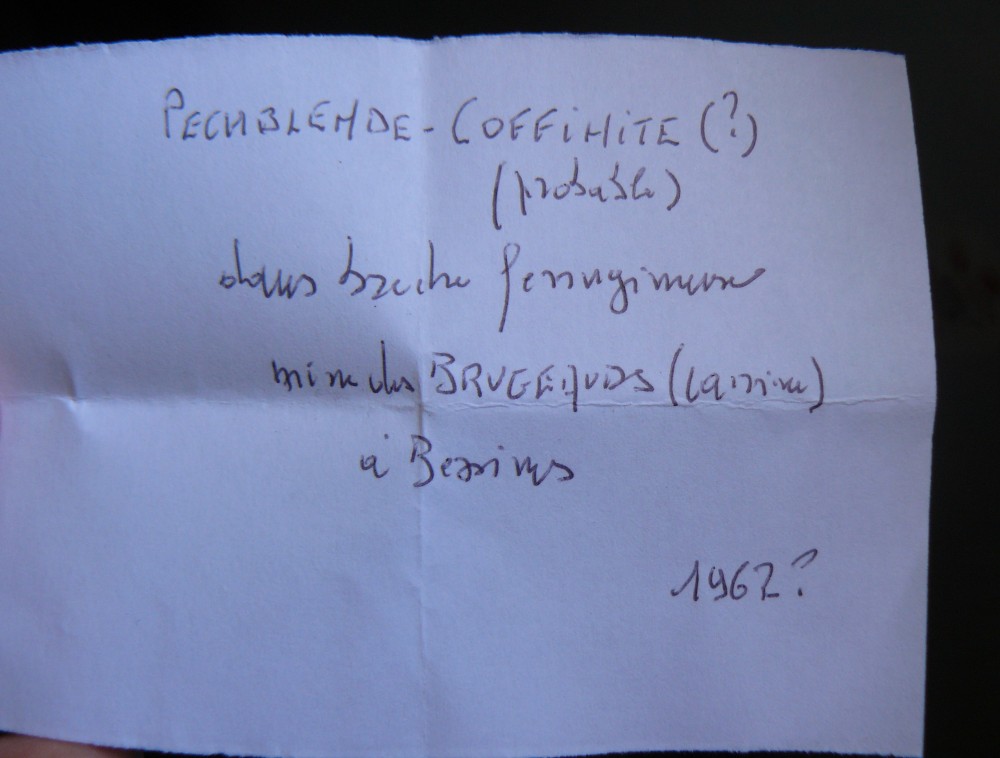 PECHBLENDE - COFFINITE (?)
(probable)
dans brèche ferrugineuse
mine des BRUGEAUDS (carrière)
à Bessines
1962?